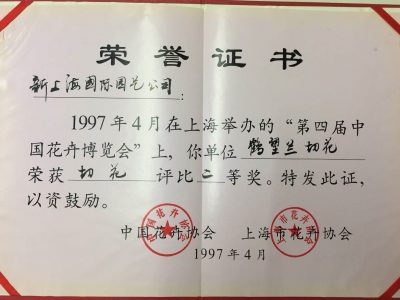 荣誉证书
新上海国际园艺公司：
1997年4月在上海举办的“第四届中
国花卉博览会”上，你单位 鹤望兰切花
荣获 切花 评比 二 等奖。特发此证，
以资鼓励。
中国花卉协会 上海市花卉协会
1997年4月
中国花卉协会
上海市花卉协会